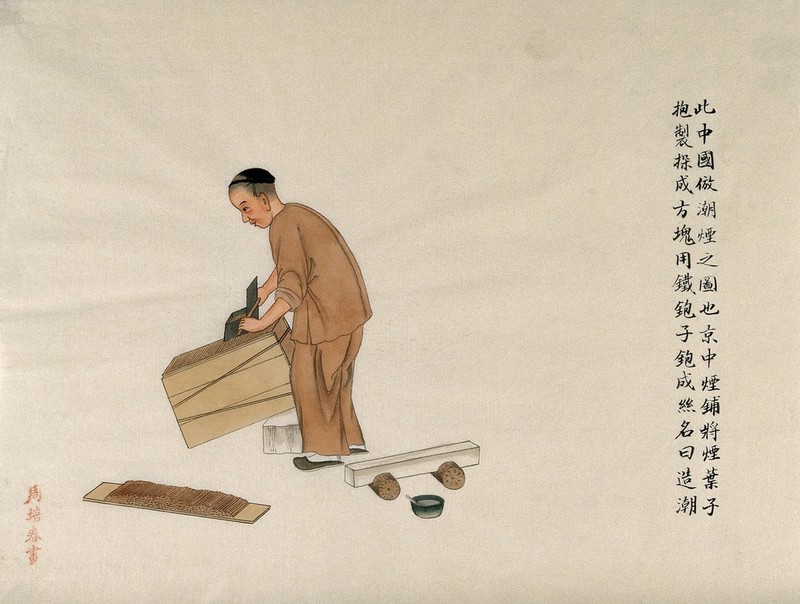 此中國倣潮煙之圖也京中煙鋪將煙葉子
抱製探成方塊用鐵鉋子鉋成絲名曰造潮
周培春畫